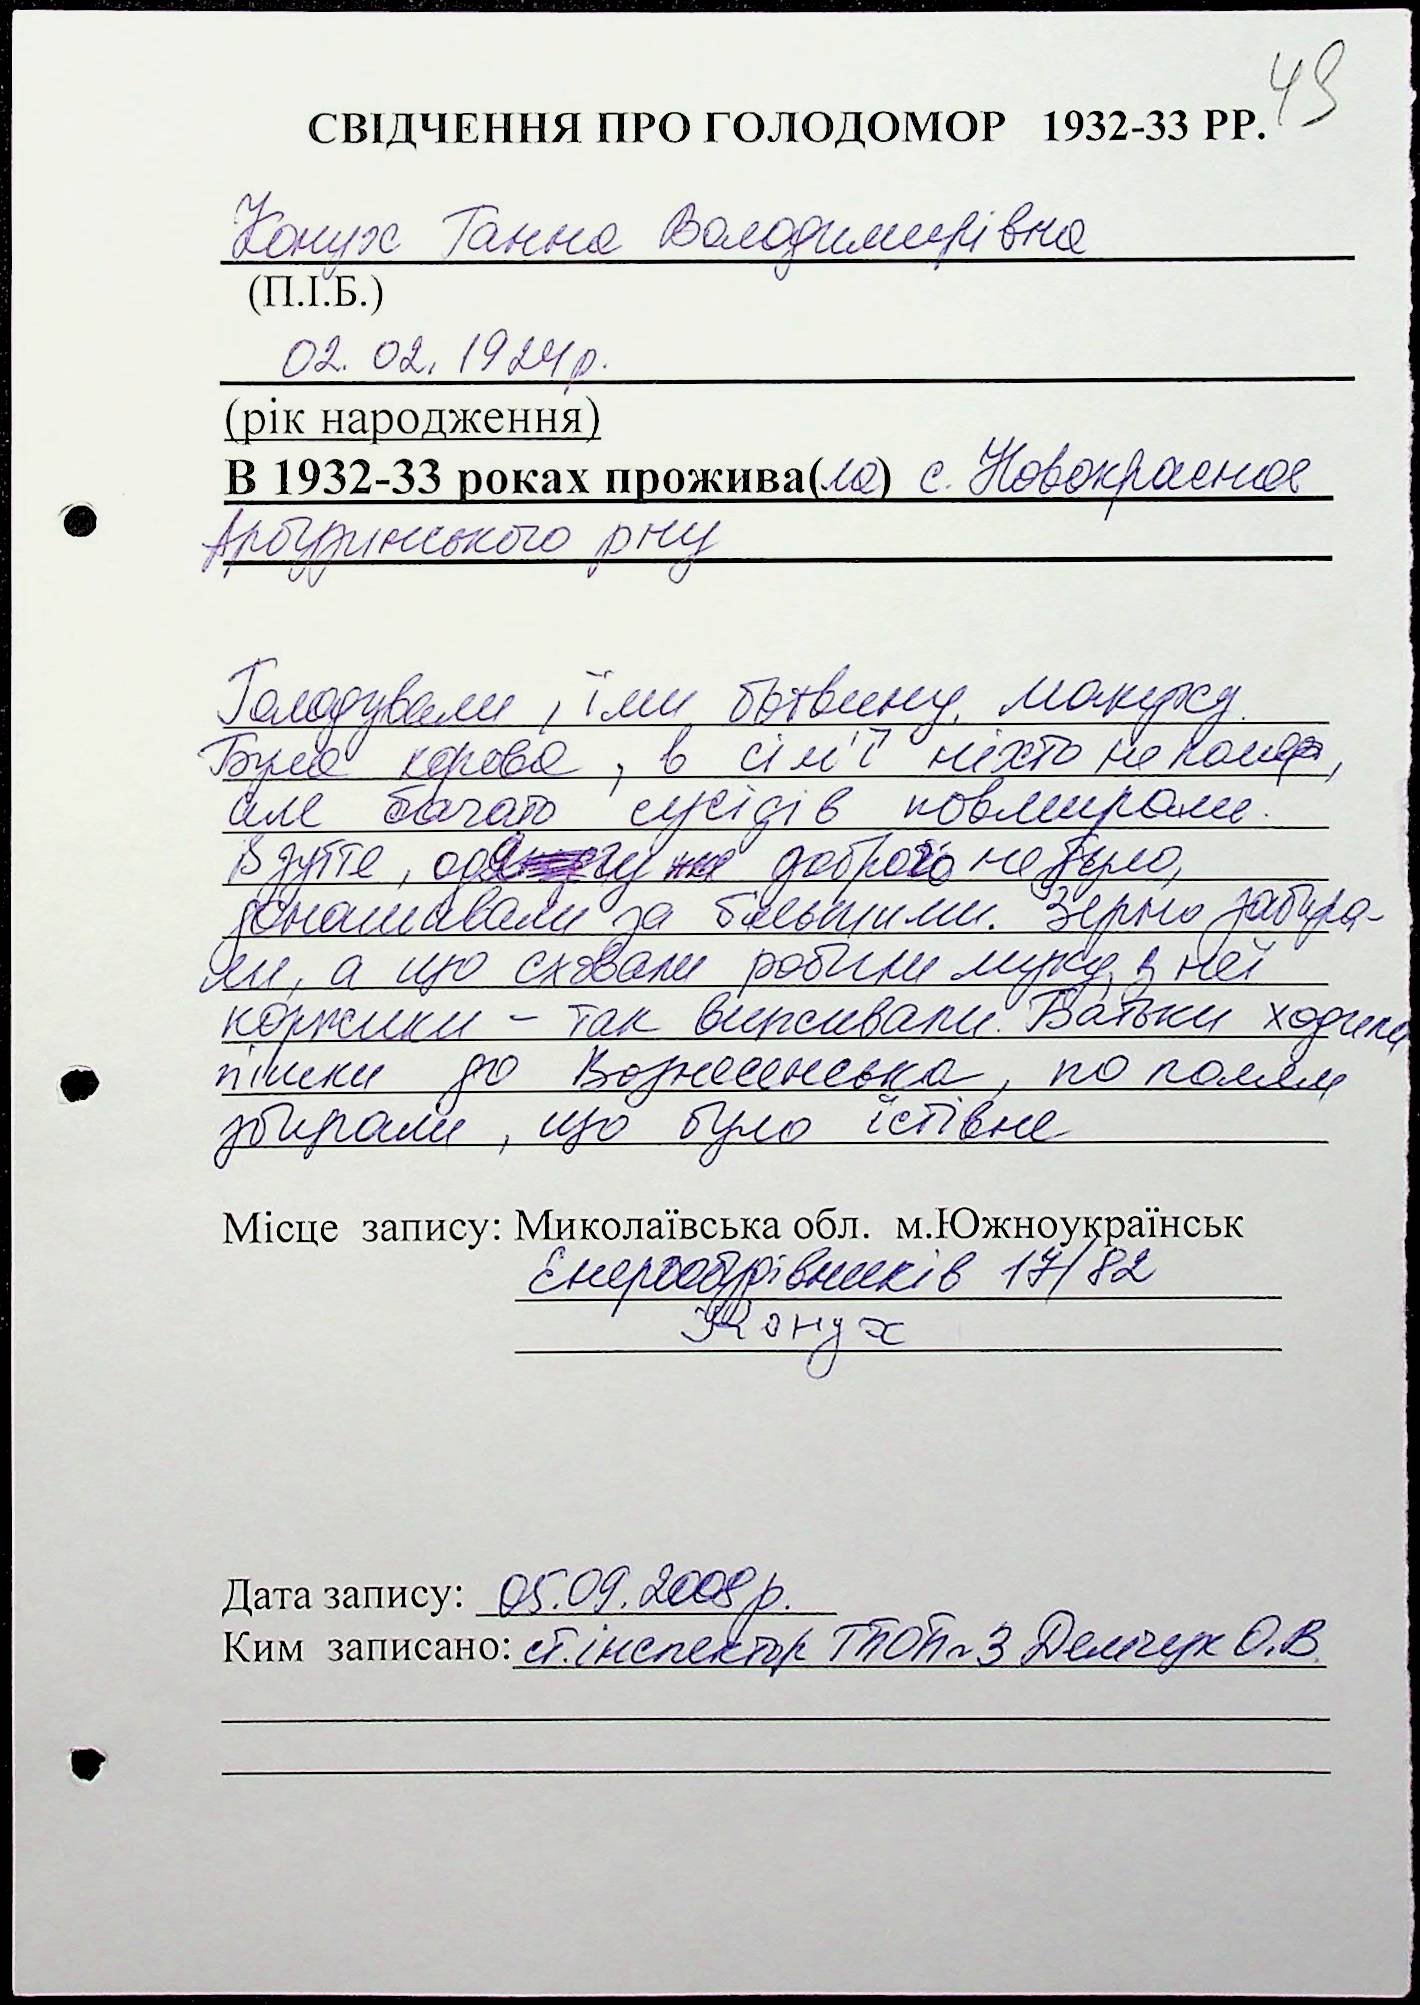 49
СВІДЧЕННЯ ПРО ГОЛОДОМОР 1932-33 РР.
Конух Ганна Володимирівна
(П.І.Б.)
02.02.1924р.
(рік народження)
В 1932-33 роках прожива(ла) с. Новокрасное
Арбузинського р-ну
Голодували, їли ботвину, макуху.
Була корова, в сім'ї ніхто не помер,
але багато сусідів повмирали.
Взуття, одягу доброго не було,
донашивали за більшими. Зерно забира-
ли, а що сховали робили муку, з неї
коржики – так виживали. Батьки ходили
пішки до Вознесенська, по полям
збирали, що було їстівне
Місце запису: Миколаївська обл. м.Южноукраїнськ
Енергобудівників 17/82
Конух
Дата запису: 05.09.2008р.
Ким записано: ст.інспектор ТПОП №3 Демчук О.В.